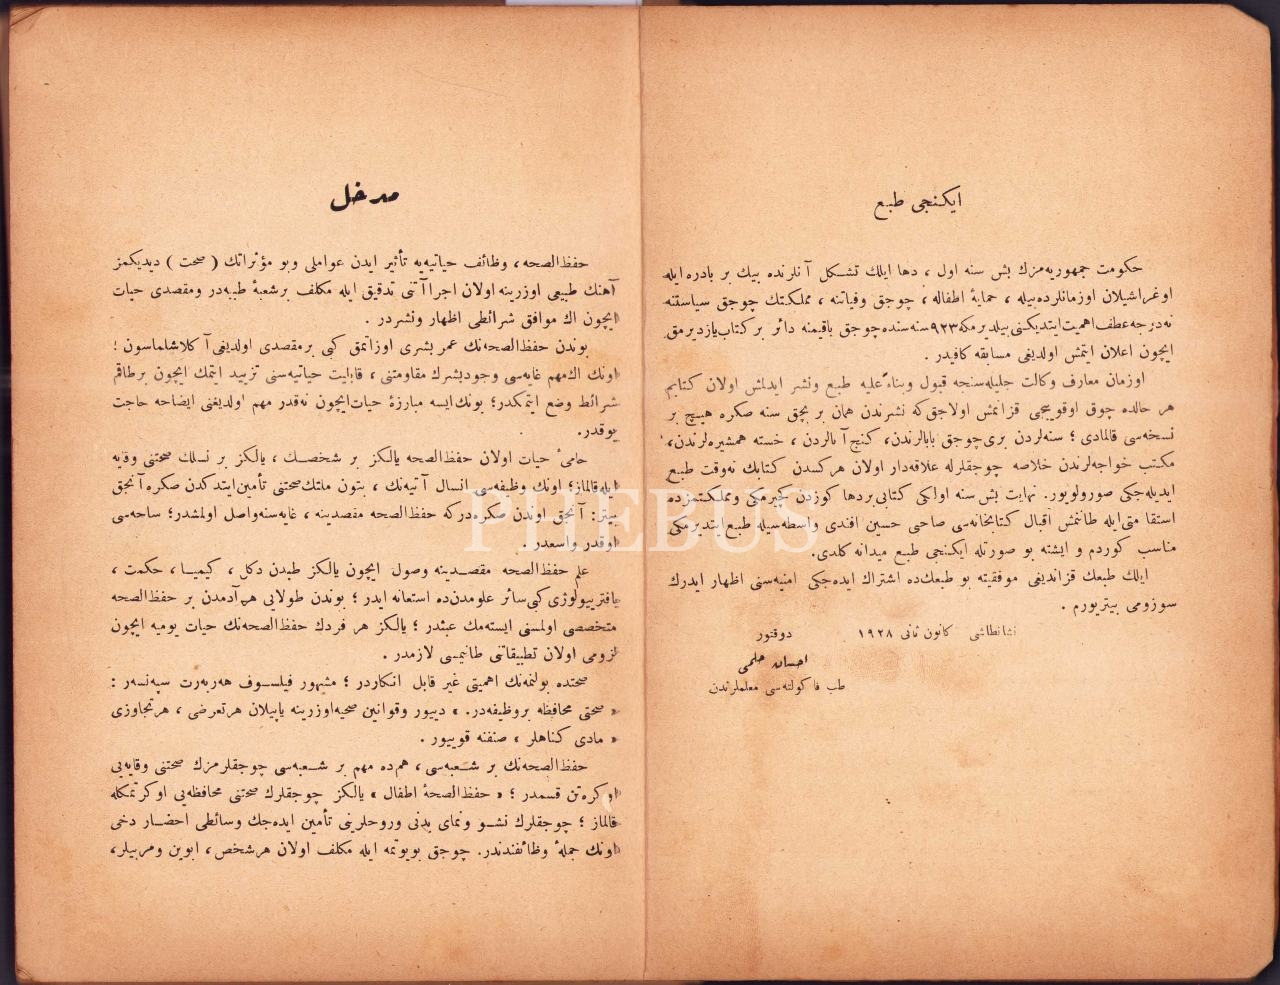 ایكنجی طبع
حكومت جمهوریه‌مزك بش سنه اول ، دها ایلك تشكل آنلرنده بیك بر بادره ایله
اوغراشیلان اوزمانلرده بیله ، حمایهٔ اطفاله ، چوجق وفیاتنه ، مملكتك چوجق سیاستنه
نه‌درجه عطف اهمیت ایتدیكنی بیلدیرمكه ٩٢٣ سنه سنده چوجق باقیمنه دائر بر كتاب یازدیرمق
ایچون اعلان ایتمش اولدیغی مسابقه كافیدر .
اوزمان معارف وكالت جلیله‌سنجه قبول وبناءً علیه طبع ونشر ایدلمش اولان كتابم
هر حالده چوق اوقویجی قزانمش اولاجق‌كه نشرندن همان بر بچق سنه صكره هیچ بر
نسخه‌سی قالمادی ؛ سنه‌لردن بری چوجق بابالرندن ، كنج آنالردن ، خسته همشیره‌لرندن ،
مكتب خواجه‌لرندن خلاصه چوجقلرله علاقه‌دار اولان هركسدن كتابك نه‌وقت طبع
ایدیله‌جكی صورولویور. نهایت بش سنه اولكی كتابی بردها كوزدن كچیرمكی ومملكتمزده
استقامتی‌ایله طانمش اقبال كتابخانه‌سی صاحبی حسین افندی واسطه‌سیله طبع ایتدیرمكی
مناسب كوردم و ایشته بو صورتله ایكنجی طبع میدانه كلدی.
ایلك طبعك قزاندیغی موفقیته بو طبعك‌ده اشتراك ایده‌جكی امنیه‌سنی اظهار ایدرك
سوزومی بیتریورم .
نشانطاشی كانون ثانی ١٩٢٨ دوقتور
احسان حلمی
طب فاكولته‌سی معلملرندن
مدخل
حفظ‌الصحه ، وظائف حیاتیه‌یه تأثیر ایدن عواملی وبو مؤثراتك ( صحت ) دیدیكمز
آهنك طبیعی اوزرینه اولان اجراآتنی تدقیق ایله مكلف بر شعبهٔ طبیه‌در ومقصدی حیات
ایچون اك موافق شرائطی اظهار ونشردر .
بوندن حفظ‌الصحه‌نك عمر بشری اوزاتمق كبی بر مقصدی اولدیغی آكلاشلماسون ؛
اونك اك‌مهم غایه‌سی وجودبشرك مقاومتنی ، قابلیت حیاتیه‌سنی تزیید ایتمك ایچون برطاقم
شرائط وضع ایتمكدر؛ بونك‌ایسه مبارزهٔ حیات‌ایچون نه‌قدر مهم اولدیغنی ایضاحه حاجت
یوقدر.
حامیٔ حیات اولان حفظ‌الصحه یالكز بر شخصك ، یالكز بر نسلك صحتنی وقایه
ایله‌قالماز؛ اونك وظیفه‌سی انسال آتیه‌نك ، بتون ملتك‌صحتنی تأمین‌ایتدكدن صكره آنجق
بیتر: آنجق اوندن صكره‌دركه حفظ‌الصحه مقصدینه ، غایه‌سنه‌واصل اولمشدر؛ ساحه‌سی
اوقدر واسعدر .
علم حفظ‌الصحه مقصدینه وصول ایچون یالكز طبدن دكل ، كیمیا ، حكمت ،
باقتریولوژی كبی سائر علومدن‌ده استعانه ایدر ؛ بوندن طولایی هر آدمدن بر حفظ‌الصحه
متخصصی اولمسنی ایسته‌مك عبثدر ؛ یالكز هر فردك حفظ‌الصحه‌نك حیات یومیه ایچون
لزومی اولان تطبیقاتی طانیمسی لازمدر .
صحتده بولنمه‌نك اهمیتی غیر قابل انكاردر ؛ مشهور فیلسوف هه‌ربه‌رت سپه‌نسه‌ر :
« صحتی محافظه بروظیفه‌در. » دییور وقوانین صحیه‌اوزرینه یاپیلان هرتعرضی ، هرتجاوزی
« مادی كناهلر ، صنفنه قوییور .
حفظ‌الصحه‌نك بر شعبه‌سی ، هم‌ده مهم بر شعبه‌سی چوجقلرمزك صحتنی وقایه‌یی
اوكره‌تن قسمدر ؛ « حفظ‌الصحهٔ اطفال » یالكز چوجقلرك صحتنی محافظه‌یی اوكرتمكله
قالماز ؛ چوجقلرك نشو ونمای بدنی وروحلرینی تأمین ایده‌جك وسائطی احضار دخی
اونك جملهٔ وظائفندندر. چوجق بویوتمه ایله مكلف اولان هرشخص ، ابوین ومربیلر،
PHEBUS